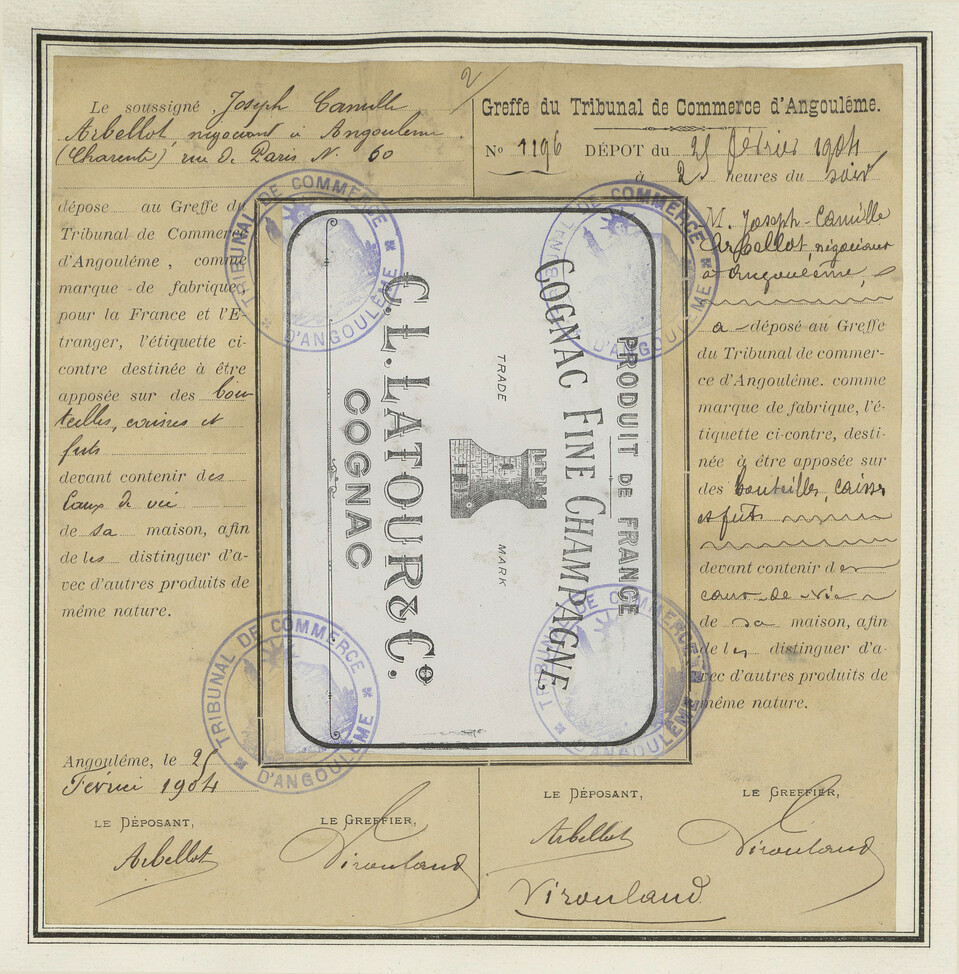 2/
Le soussigné Joseph Camille
Arbellot, négociant à Angoulême
(Charente) rue de Paris N. 60
dépose au Greffe du
Tribunal de Commerce
d'Angoulême, comme
marque de fabrique,
pour la France et l'É-
tranger, l'étiquette ci-
contre destinée à être
apposée sur des bou-
teilles, caisses et
futs
devant contenir des
Eaux de vie
de sa maison, afin
de les distinguer d'a-
vec d'autres produits de
même nature.
Angoulême, le 25
Février 1904
LE DÉPOSANT,
LE GREFFIER,
Arbellot
Virouland
PRODUIT DE FRANCE
COGNAC FINE CHAMPAGNE
TRADE MARK
C.L. LATOUR & Cº.
COGNAC
TRIBUNAL DE COMMERCE D'ANGOULÊME
TRIBUNAL DE COMMERCE D'ANGOULÊME
TRIBUNAL DE COMMERCE D'ANGOULÊME
TRIBUNAL DE COMMERCE D'ANGOULÊME
Greffe du Tribunal de Commerce d'Angoulême.
Nº 1196 DÉPOT du 25 février 1904
à 2 heures du soir
M. Joseph-Camille
Arbellot, négociant
à Angoulême,
a déposé au Greffe
du Tribunal de commer-
ce d'Angoulême. comme
marque de fabrique, l'é-
tiquette ci-contre, desti-
née à être apposée sur
des bouteilles, caisses
et futs
devant contenir des
eaux-de-vie
de sa maison, afin
de les distinguer d'a-
vec d'autres produits de
même nature.
LE DÉPOSANT,
LE GREFFIER,
Arbellot
Virouland
Virouland